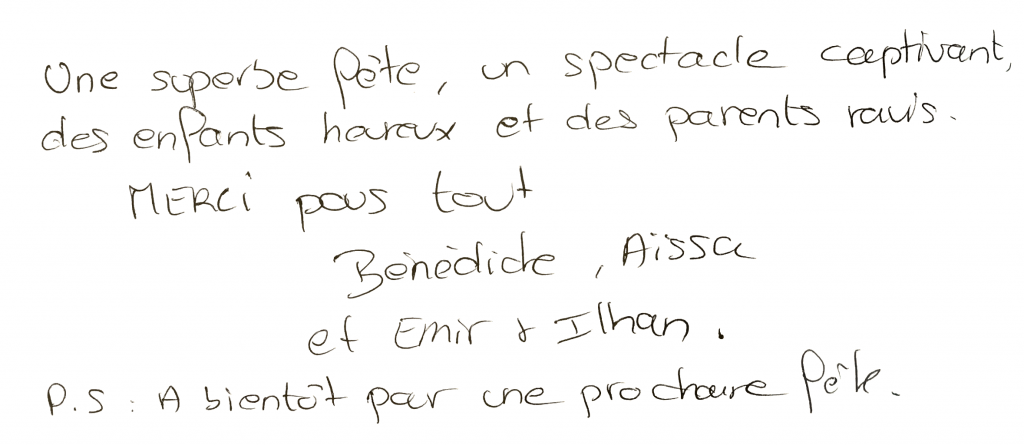 Une superbe fête, un spectacle captivant,
des enfants heureux et des parents ravis.
MERCI pour tout
Bénédicte, Aïssa
et Emir & Ilhan.
P.S : A bientôt pour une prochaine fête.